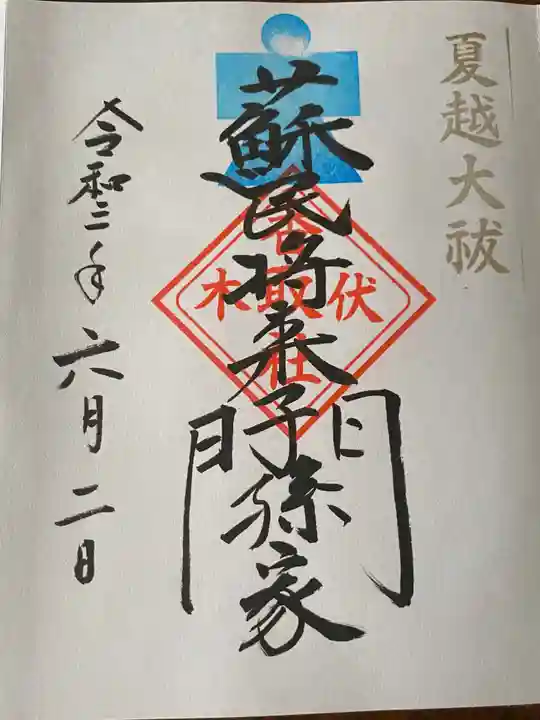 夏越大祓
蘇民将来子孫家門
伏木香取社
令和二年六月二日